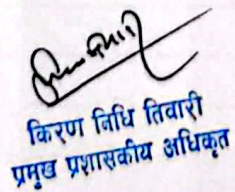 किरण निधि तिवारी
प्रमुख प्रशासकीय अधिकृत